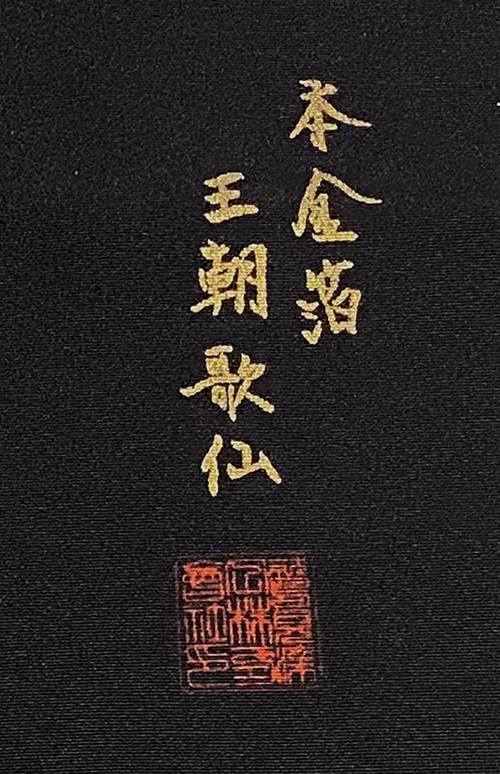 本金箔
王朝歌仙